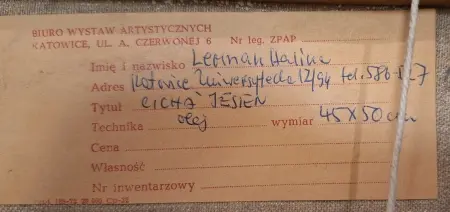 BIURO WYSTAW ARTYSTYCZNYCH
KATOWICE, UL. A. CZERWONEJ 6 Nr leg. ZPAP
Imię i nazwisko Lerman Halina
Adres Katowice Uniwersytecka 12/94 tel. 586-
Tytuł "CICHA JESIEŃ"
Technika olej wymiar 45x50 cm
Cena
Własność
Nr inwentarzowy